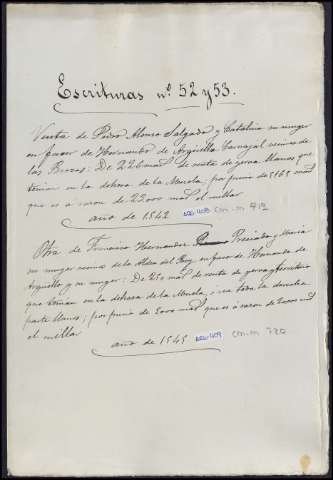 Escrituras nº 52 y 53.
Venta de Pedro Alonso Salgado y Catalina su muger
en favor de Hernando de Argüello Carvajal vecinos de
las Brozas: De 226 mrs de renta de yerva llanos que
tenian en la dehesa de la Muela; por precio de mrs
que es á razon de 23000 mrs el millar
año de 1542 com-m 719
Otra de Francisco Hernandez y Maria
su muger vecinos de la Aldea del Rey en favor de Hernando de
Argüello y su muger: De 250 mrs de renta de yerva
que tenian en la dehesa de la Muela, ó en toda la derecha
parte llanos; por precio de 5000 mrs que es á razon de 20000 mrs
el millar
año de 1545 com-m 720